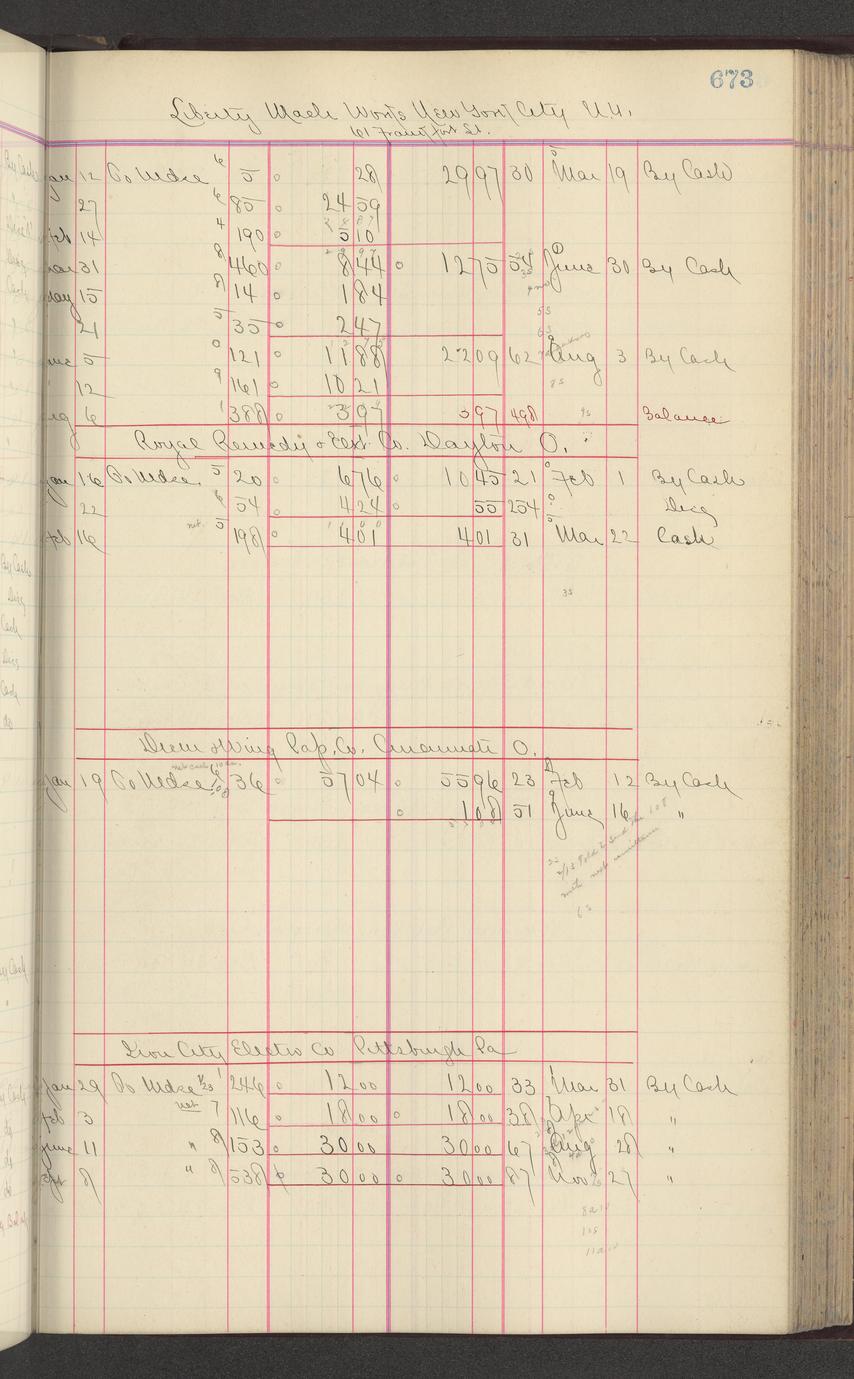 673
Liberty Mach Works New York City N.Y.
61 Frankfort St.
Jan 12 To Mdse 6 5 28 29 97 30 Mar 19 By Cash
27 6 85 24 59
Feb 14 4 190 5 10
Mar 31 8 460 8 44 12 75 54 June 30 By Cash
May 15 8 14 1 84
21 5 35 2 47
June 5 0 121 11 88 22 09 62 Aug 3 By Cash
12 9 161 10 21
Aug 6 1 388 3 97 3 97 498 Balance
Royal Remedy & Ext. Co. Dayton O.
Jan 16 To Mdse 5 20 6 76 10 45 21 Feb 1 By Cash
22 6 54 4 24 55 254 Disc
Feb 16 net 5 198 4 01 4 01 31 Mar 22 Cash
3s
Pap. Co. Cincinnati O.
Jan 19 To Mdse 36 57 04 55 96 23 Feb 12 By Cash
1 08 51 June 16 "
6s
Iron City Electro Co Pittsburgh Pa
Jan 29 To Mdse 1/20 1 246 12 00 12 00 33 Mar 31 By Cash
Feb 3 net 7 116 18 00 18 00 38 Apr 18 "
June 11 " 8 153 30 00 30 00 67 Aug 28 "
Sept 8 " 8 538 30 00 30 00 87 Nov 27 "
10s